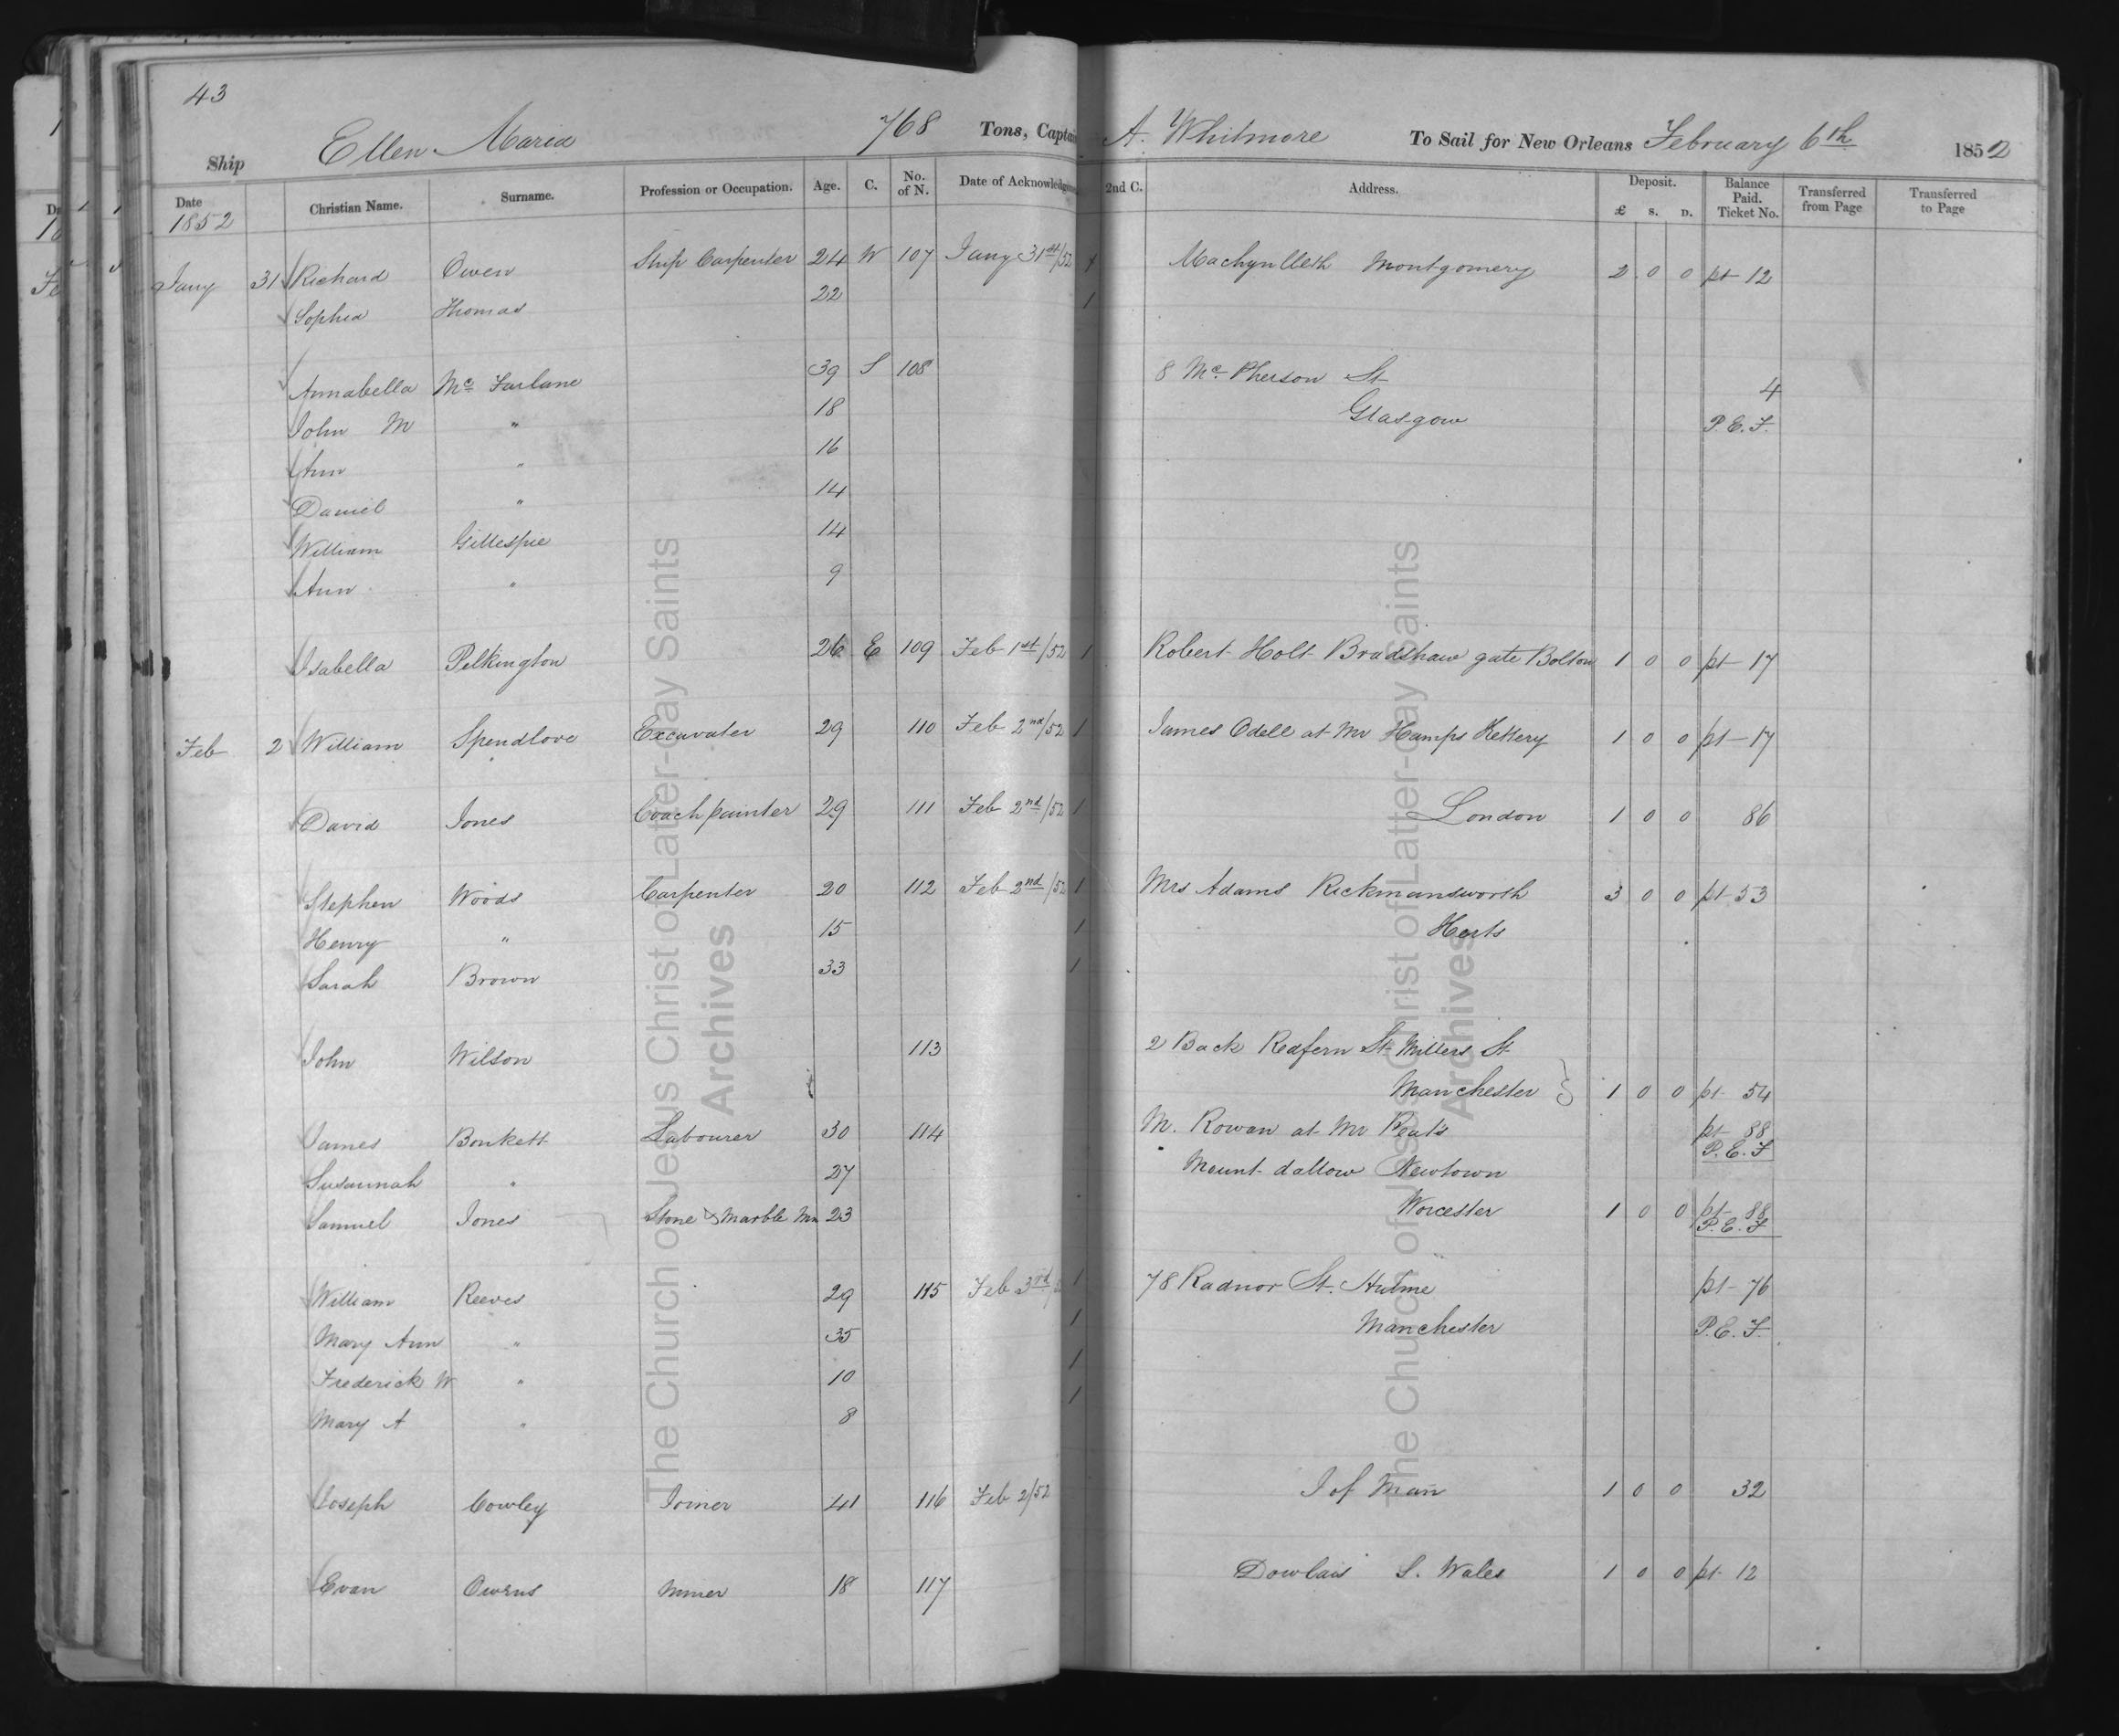 43
Ship Ellen Maria 768 Tons, Captain A. Whitmore To Sail for New Orleans February 6th 1852
Date 1852 Christian Name. Surname. Profession or Occupation. Age. C. No. of N. Date of Acknowledgment 2nd C. Address. Deposit. £ S. D. Balance Paid. Ticket No. Transferred from Page Transferred to Page
Jany 31 Richard Owen Ship Carpenter 24 W 107 Jany 31st/52 1 Machynlleth Montgomery 2 0 0 pt 12
Sophia Thomas 22 1
Annabella Mc Farlane 39 S 108 8 Mc Pherson St 4
John M " 18 Glasgow P.E.F.
Ann " 16
Daniel " 14
William Gillespie 14
Ann " 9
Isabella Pilkington 26 E 109 Feb 1st/52 1 Robert Holt Bradshaw gate Bolton 1 0 0 pt 17
Feb 2 William Spendlove Excavater 29 110 Feb 2nd/52 1 James Odell at Mr Hamps Kettery 1 0 0 pt 17
David Jones Coach painter 29 111 Feb 2nd/52 1 London 1 0 0 86
Stephen Woods Carpenter 20 112 Feb 2nd/52 1 Mrs Adams Rickmansworth 3 0 0 pt 53
Henry " 15 1 Herts
Sarah Brown 33 1
John Wilson 113 2 Back Redfern St Millers St
Manchester 1 0 0 pt 54
James Bonkett Labourer 30 114 M. Rowan at Mr Peat's pt 88 P.E.F
Susannah " 27 Mount dallow Newtown
Samuel Jones Stone & Marble Mn 23 Worcester 1 0 0 pt 88 P.E.F
William Reeves 29 115 Feb 3rd/52 1 78 Radnor St. Hulme pt 76
Mary Ann " 35 1 Manchester P.E.F.
Frederick W " 10 1
Mary A " 8 1
Joseph Cowley Joiner 41 116 Feb 2/52 I of Man 1 0 0 32
Evan Owens Miner 18 117 Dowlais S. Wales 1 0 0 pt 12
The Church of Jesus Christ of Latter-day Saints
Archives
The Church of Jesus Christ of Latter-day Saints
Archives